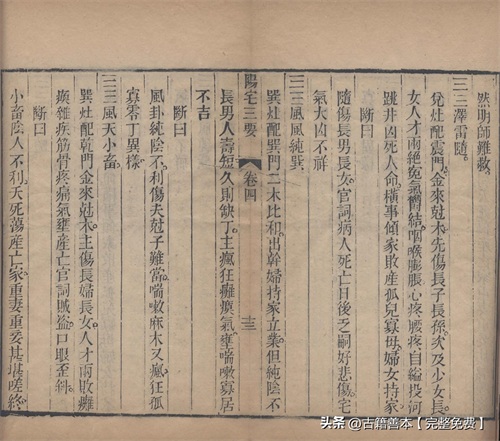 然明師難救
☱☳澤雷隨
兌灶配震門金來尅木先傷長子長孫次及少女長
女人才兩絕寃氣纏結咽喉膨脹心疼腰疼自縊投河
跳井凶死人命橫事傾家敗産孤兒寡母婦女持家
斷曰
隨傷長男長女官詞病人死亡日後之嗣好悲傷宅
氣大凶不祥
☴☴風風純巽
巽灶配巽門二木比和出幹婦持家立業但純陰不
長男人壽短久則缺丁主瘋狂癱瘓氣壅喘嗽寡居
不吉
陽宅三要
卷四
十三
斷曰
風卦純陰不利傷夫尅子難當喘嗽麻木又瘋狂孤
寡零丁異樣
☴☰風天小畜
巽灶配乾門金來尅木主傷長婦長女人才兩敗癱
瘓雜疾筋骨疼痛氣壅産亡官詞賊盜口眼歪斜
斷曰
小畜陰人不利夭死蕩産亡家重妻重妾甚堪嗟終
头条 @古籍善本【完整免费】